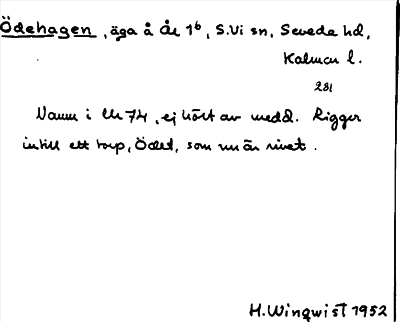 Ödehagen, äga å År 1⁶, S.Vi sn, Sevede hd,
Kalmar l.
281
Namn i Uh 74, ej hört av medd. Ligger
intill ett torp, Ödet, som nu är rivet.
H. Winqvist 1952